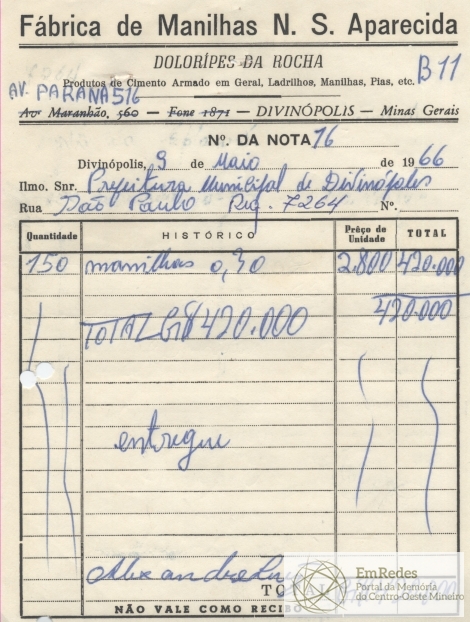 Fábrica de Manilhas N. S. Aparecida
DOLORÍPES DA ROCHA
Produtos de Cimento Armado em Geral, Ladrilhos, Manilhas, Pias, etc. B11
AV. PARANÁ 516
Av. Maranhão, 560 — Fone 1871 — DIVINÓPOLIS — Minas Gerais
Nº. DA NOTA 76
Divinópolis, 9 de Maio de 1966
Ilmo. Snr. Prefeitura Municipal de Divinópolis
Rua São Paulo Riq. 7264 Nº.
Quantidade HISTÓRICO Prêço de Unidade TOTAL
150 manilhas 0,30 2.800 420.000
TOTAL CR$ 420.000 420.000
entregue
Alexandre
TO
NÃO VALE COMO RECIBO
EmRedes
Portal da Memória
do Centro-Oeste Mineiro